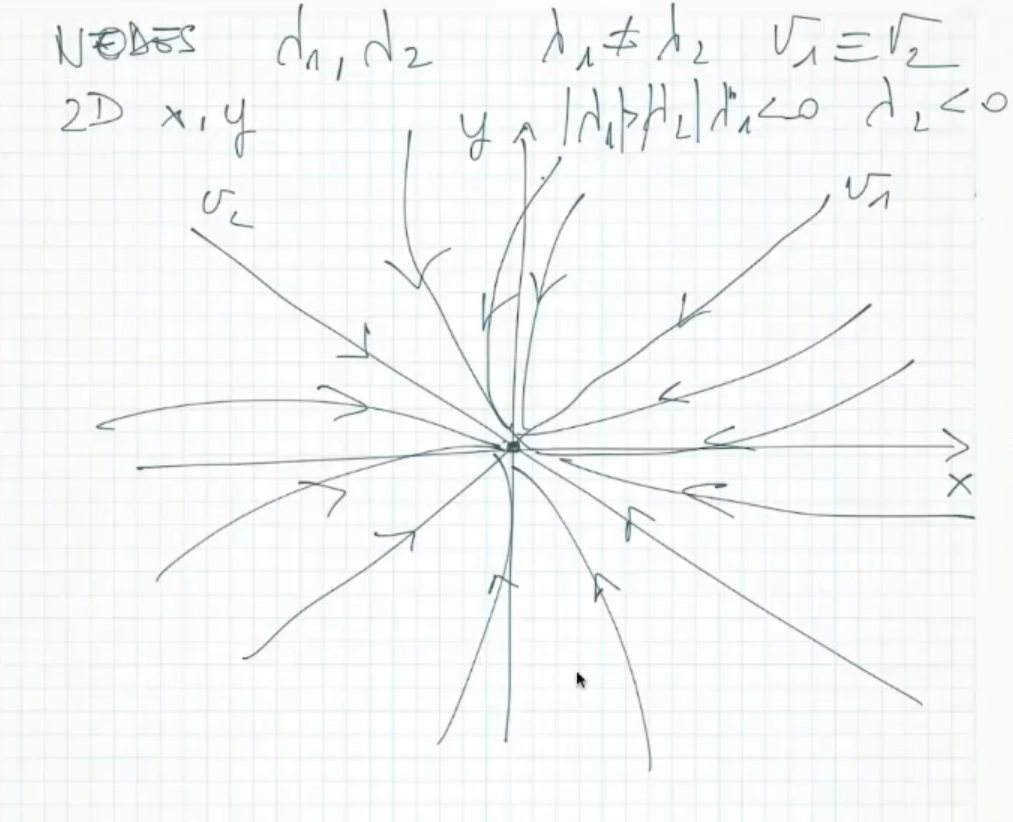 NODES λ₁, λ₂ λ₁ ≠ λ₂ v₁ ≡ v₂
2D x, y y |λ₁|>|λ₂| λ₁<0 λ₂<0
v₂ v₁
x